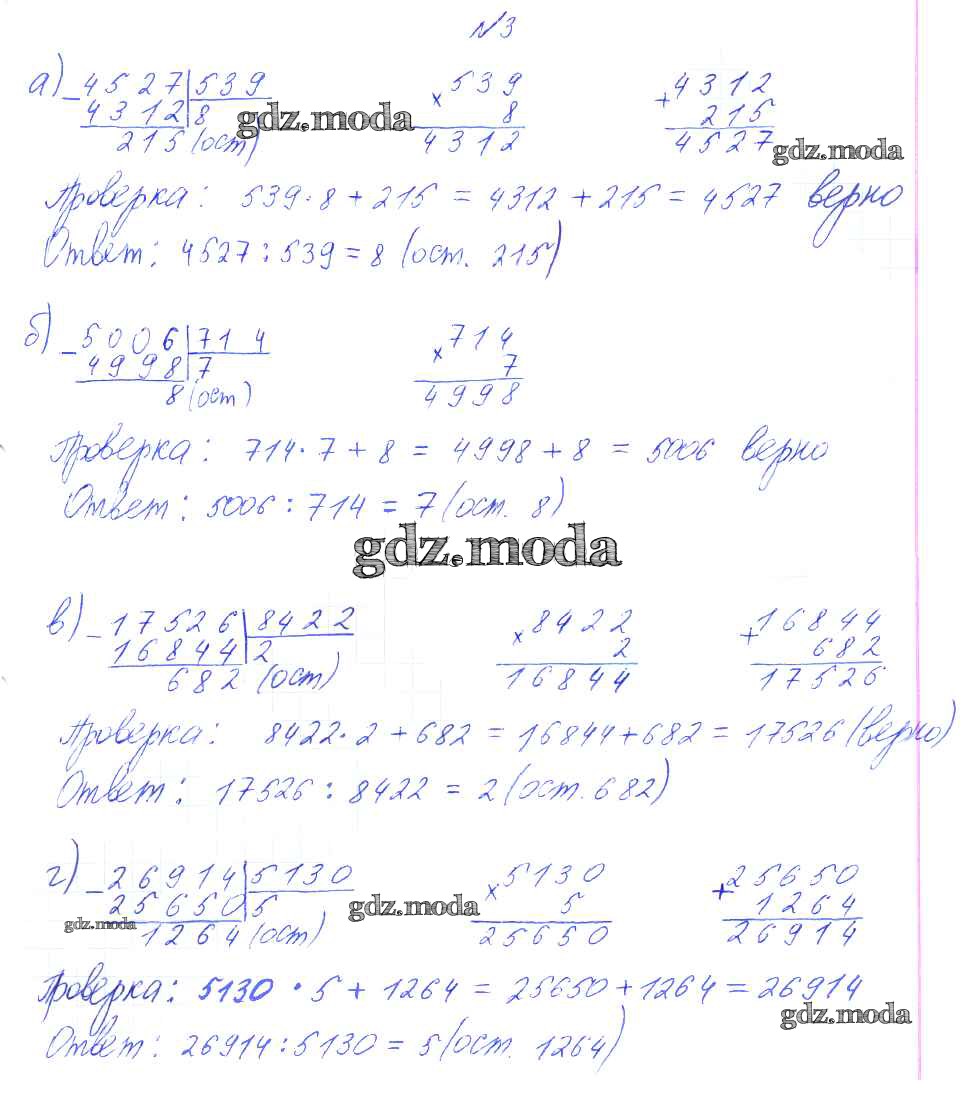 №3
а) 4527 | 539 539 4312
4312 | 8 × 8 + 215
215 (ост) 4312 4527
gdz.moda
gdz.moda
Проверка: 539·8 + 215 = 4312 + 215 = 4527 верно
Ответ: 4527 : 539 = 8 (ост. 215)
б) - 5006 | 714 × 714
4998 | 7 7
8 (ост) 4998
Проверка: 714·7 + 8 = 4998 + 8 = 5006 верно
Ответ: 5006 : 714 = 7 (ост. 8)
gdz.moda
в) - 17526 | 8422 × 8422 + 16844
16844 | 2 2 682
682 (ост) 16844 17526
Проверка: 8422·2 + 682 = 16844 + 682 = 17526 (верно)
Ответ: 17526 : 8422 = 2 (ост. 682)
г) - 26914 | 5130 × 5130 + 25650
25650 | 5 gdz.moda 5 1264
gdz.moda 1264 (ост) 25650 26914
Проверка: 5130 · 5 + 1264 = 25650 + 1264 = 26914
gdz.moda
Ответ: 26914 : 5130 = 5 (ост. 1264)